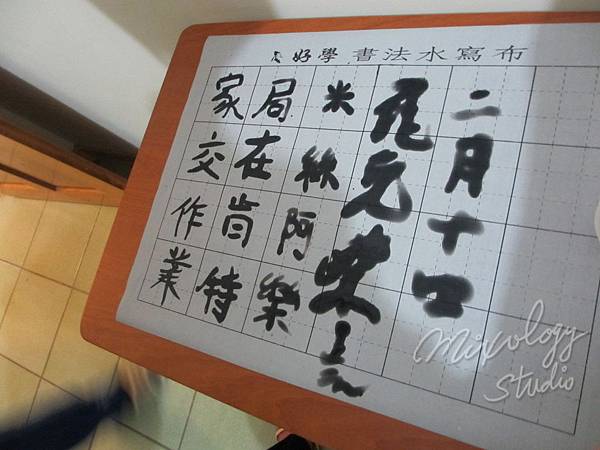 好學書法水寫布
二月十口
元
米阿樂
局在肯特
家交作業
Mixology Studio